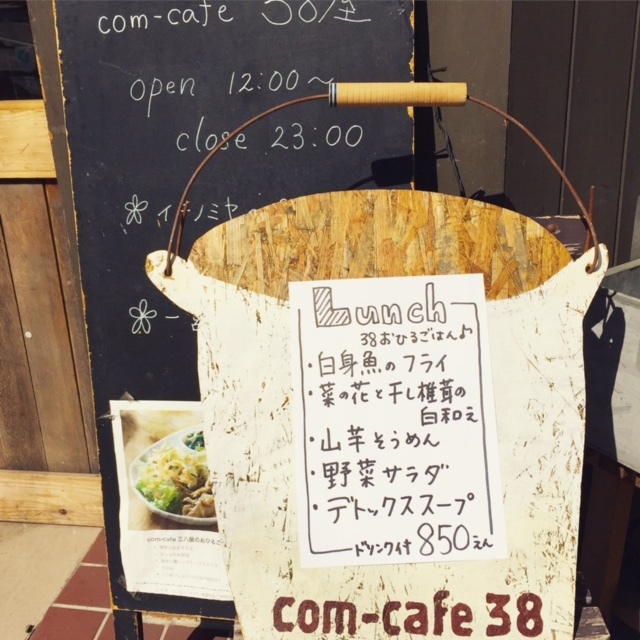 com-cafe
open 12:00~
close 23:00
Lunch
38おひるごはん♪
・白身魚のフライ
・菜の花と干し椎茸の
白和え
・山芋そうめん
・野菜サラダ
・デトックススープ
ドリンク付 850えん
com-cafe 三八屋のおひるご
com-cafe 38